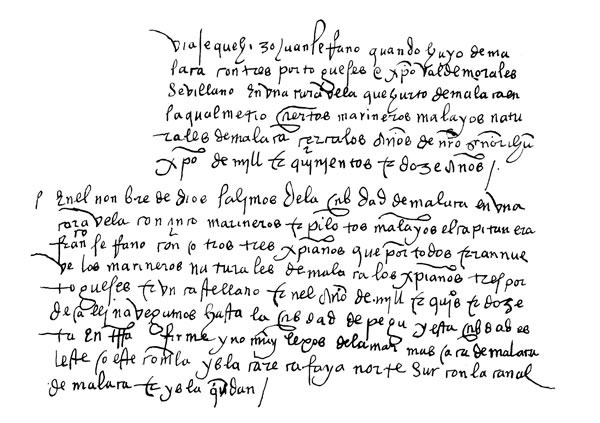 viaje que hizo Juan se fano quando huyo de ma
laca con tres portogueses e xpo valdemorales
sevillano en vna caravela que hurto de malaca en
la qual metio ciertos marineros malayos natu
rales de malaca años de nro señor
xpo de mjll & qujnjentos & doze años /
En el nonbre de dios salimos de la cibdad de malaca en vna
caravela con cinco marineros & pilotos malayos el capitan era
francº se fano con otros tres xpianos que por todos heran nue
ve los marineros naturales de malaca los xpianos tres por
togueses & vn castellano & en el año de mjll & qujºs & doze
de navegamos hasta la cibdad de pegu y esta cibdad es
ta en tffa firme y no muy lexos de la mar mas cara de malaca
leste oeste con la ysla norte sur con la canal
de malaca & ysla